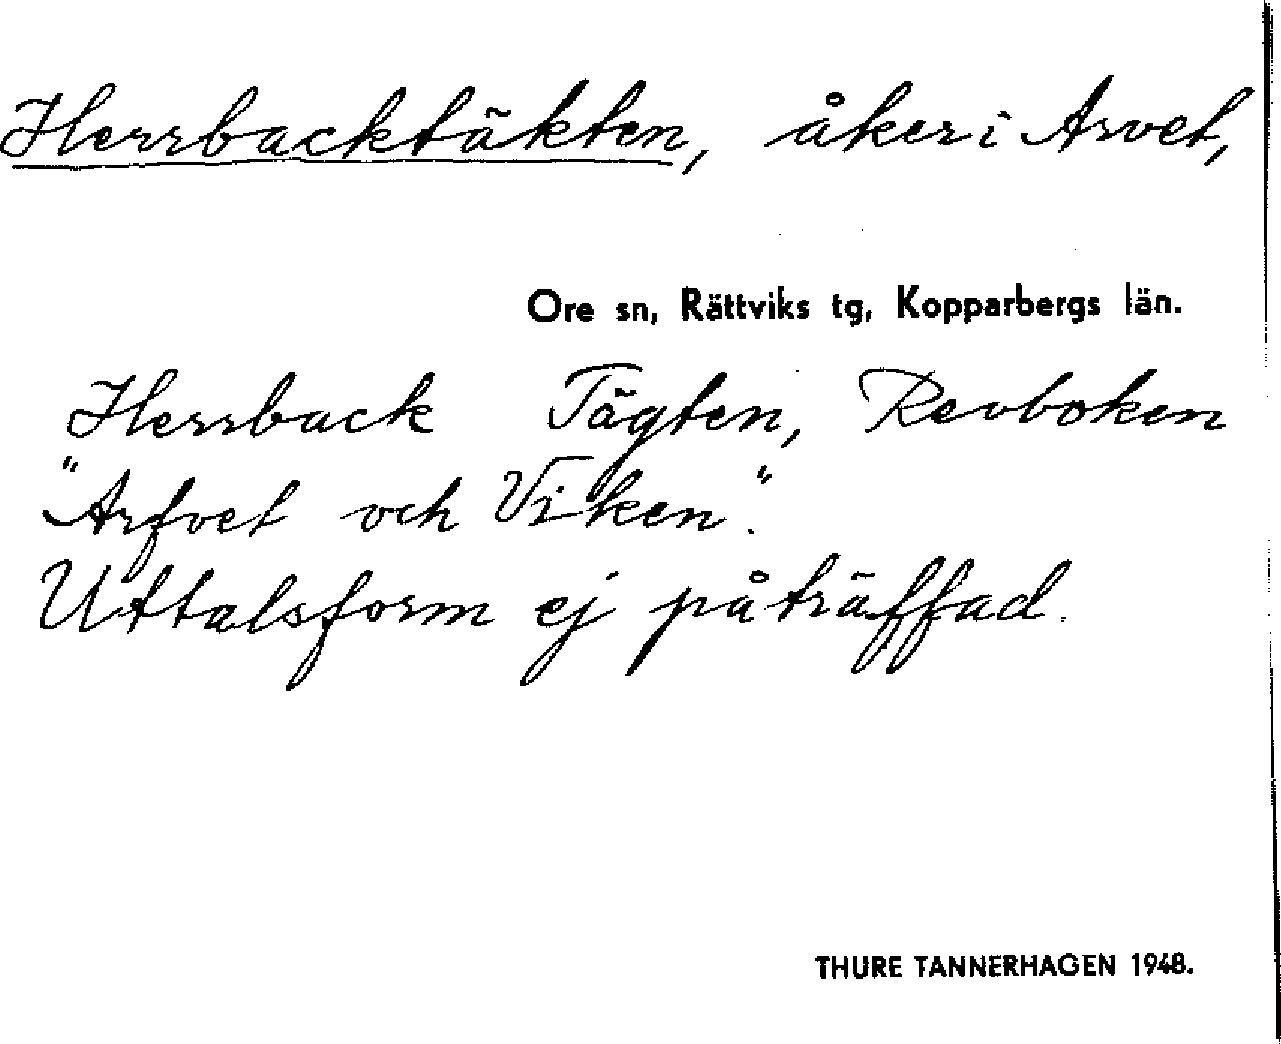 Herrbacktäkten, åker i Arvet,
Ore sn, Rättviks tg, Kopparbergs län.
Herrback Tägten, Revboken
"Arfvet och Viken".
Uttalsform ej påträffad.
THURE TANNERHAGEN 1948.